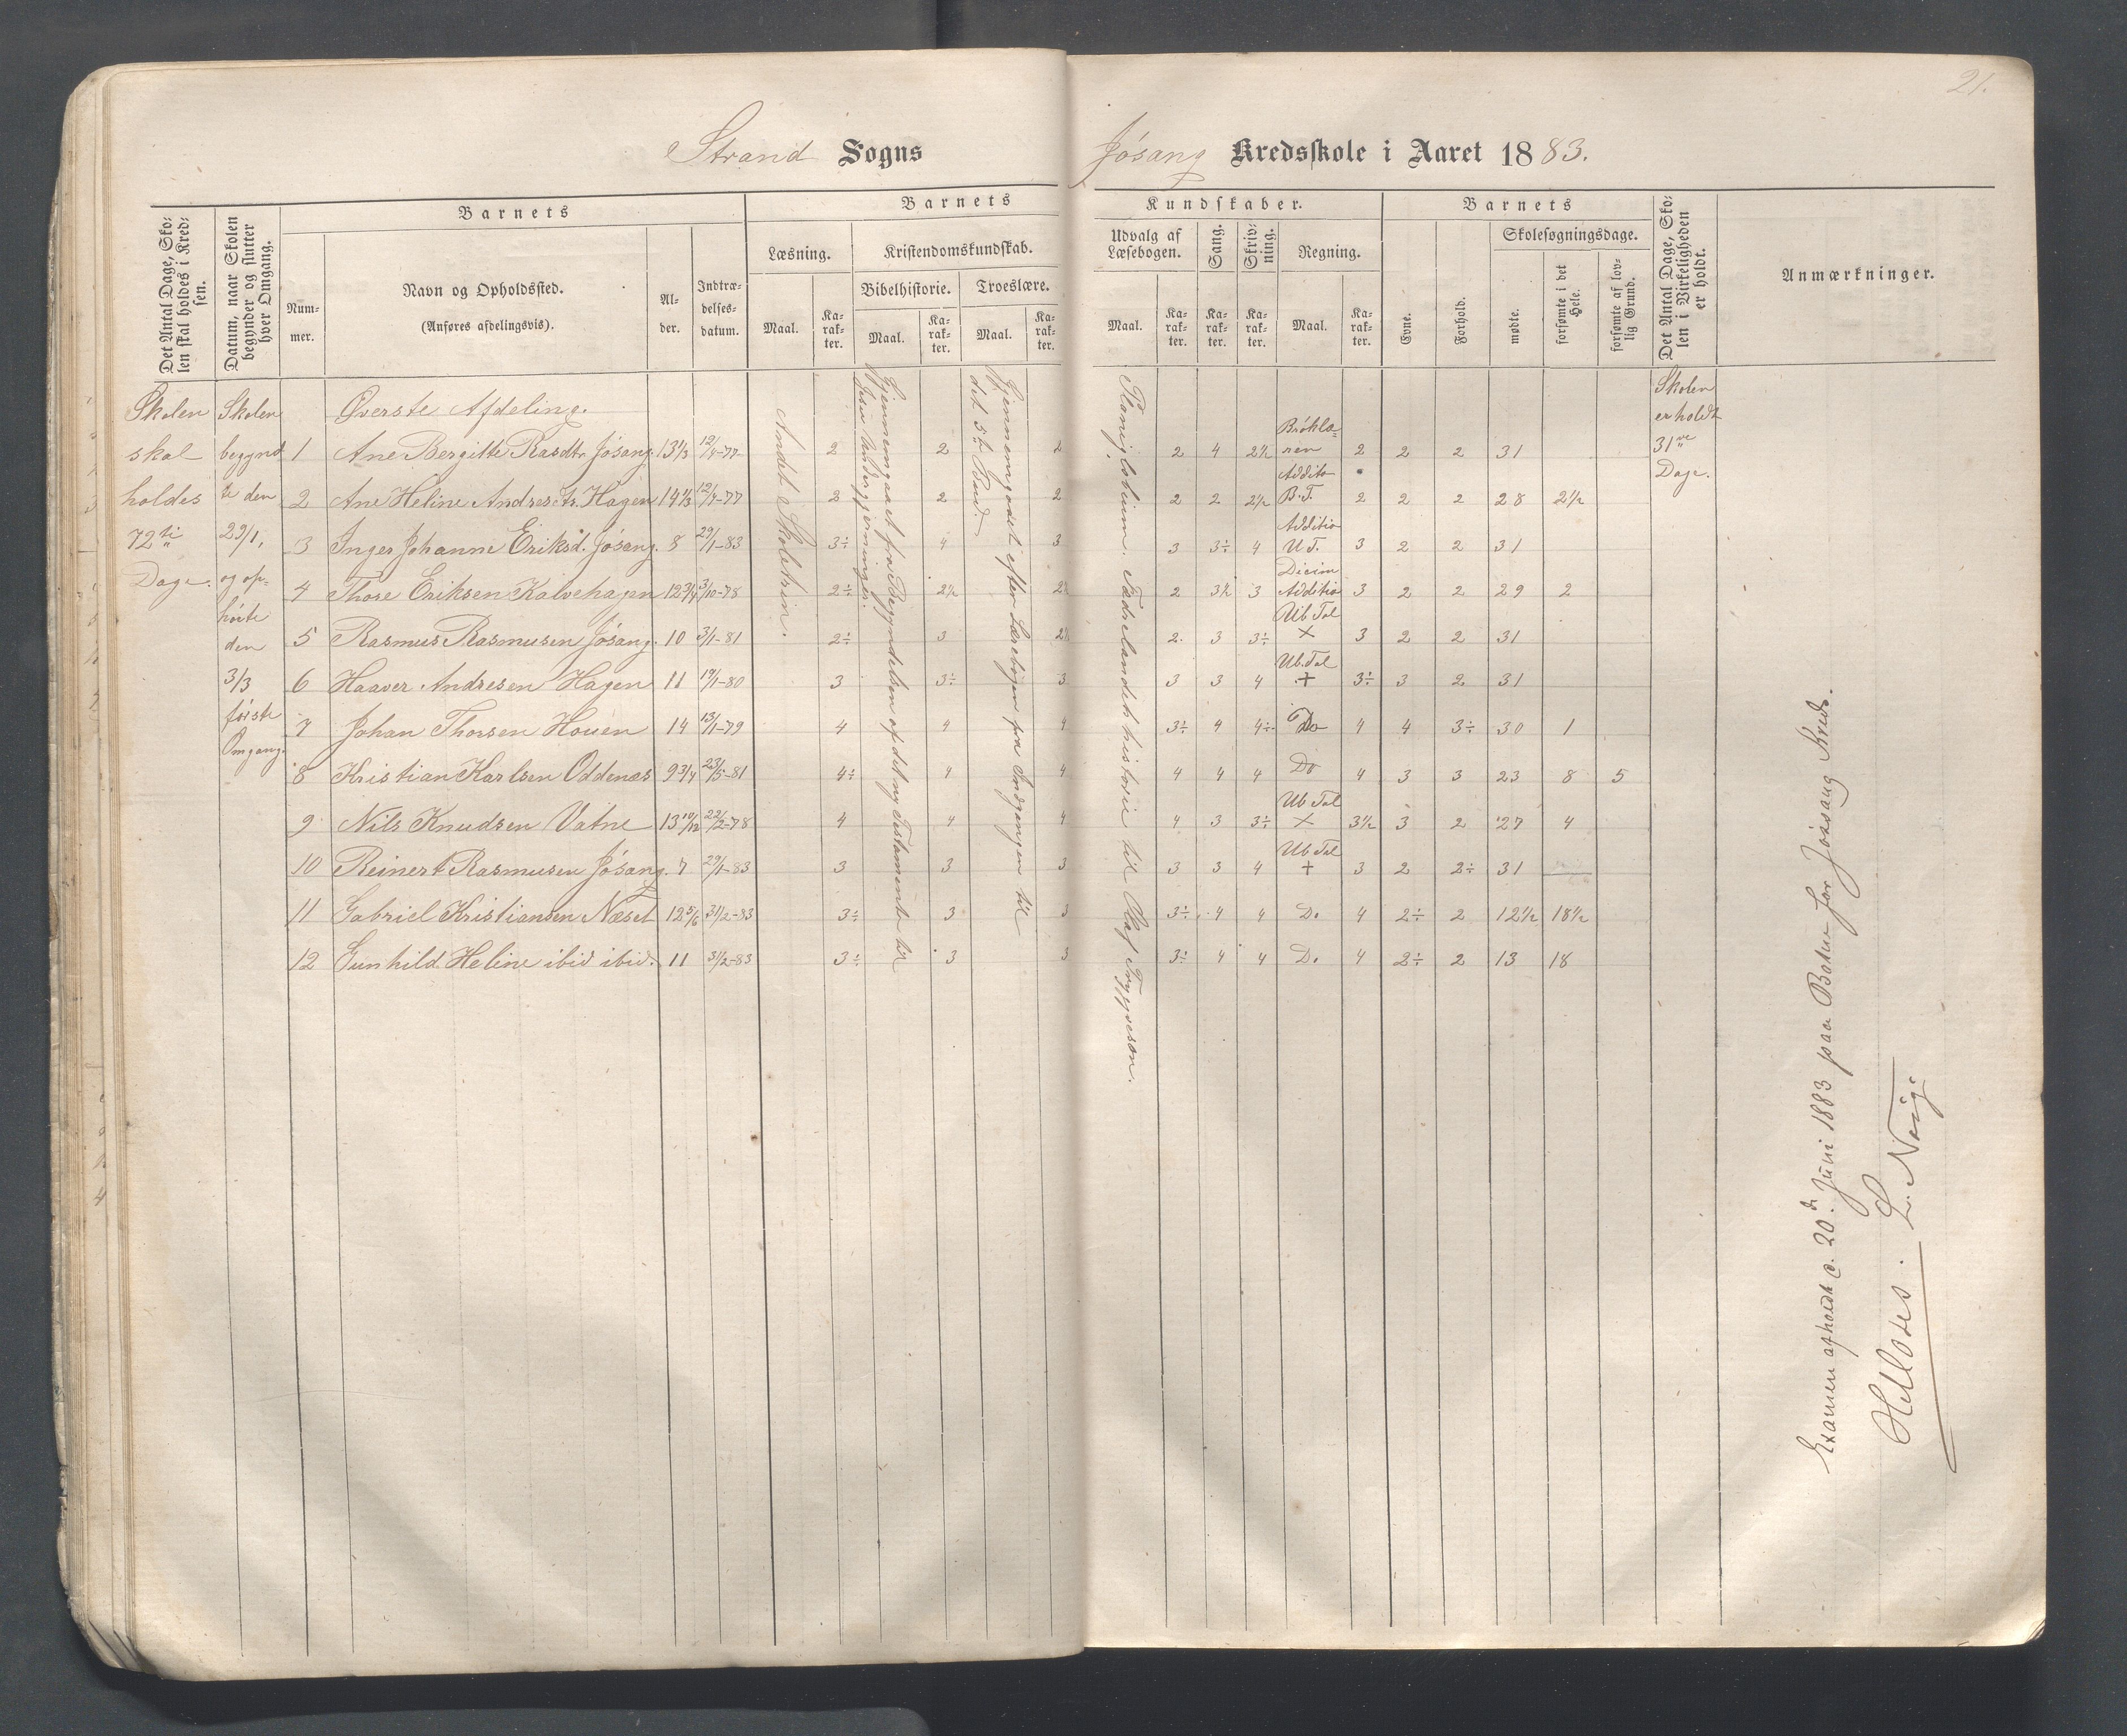 21.
Strand Sogns
Jósang Kredsskole i Aaret 1883.
Det Antal Dage, Skolen skal holdes i Kredsen.
Datum, naar Skolen begynder og slutter hver Omgang.
Barnets
Nummer.
Navn og Opholdssted.
(Anføres afdelingsvis).
Alder.
Indtrædelsesdatum.
Barnets
Læsning.
Maal.
Karakter.
Kristendomskundskab.
Bibelhistorie.
Maal.
Karakter.
Troeslære.
Maal.
Karakter.
Kundskaber.
Udvalg af Læsebogen.
Maal.
Karakter.
Sang.
Karakter.
Skrivning.
Karakter.
Regning.
Maal.
Karakter.
Barnets
Evne.
Forhold.
Skolesøgningsdage.
mødte.
forsømte i det Hele.
forsømte af lovlig Grund.
Det Antal Dage, Skolen i Virkeligheden er holdt.
Anmærkninger.
Skolen
skal
holdes
72ti
Dage.
Skolen
begynd
te den
29/1,
og op-
hörte
den
3/3
förste
Omgang.
Øverste Afdeling.
1 Ane Bergitte Rasdtr. Jósang. 13 1/3 12/4-77 2 2 2 2 4 2½ Brökla-nen 2 2 2 31
2 Ane Heline Andresdtr. Hagen 14 1/3 12/4-77 2 2 2 2 2 2½ Additio B.T. 2 2 2 28 2½
3 Inger Johanne Eriksd. Jósang. 8 29/1-83 3÷ 4 3 3 3÷ 4 Additio U.T. 3 2 2 31
4 Thore Eriksen Kalvehagen 12 3/4 3/10-78 2÷ 2½ 2½ 2 3½ 3 Additio 3 2 2 29 2
5 Rasmus Rasmusen Jósang. 10 3/1-81 2÷ 3 2½ 2 3 3÷ Ub Tal × 3 2 2 31
6 Haaver Andresen Hagen 11 19/1-80 3 3÷ 3 3 3 4 Ub. Tal + 3÷ 3 2 31
7 Johan Thorsen Houen 14 13/1-79 4 4 4 3÷ 4 4÷ Do 4 4 3÷ 30 1
8 Kristian Karlsen Oddenæs 9 3/4 23/5-81 4÷ 4 4 4 4 4 Do 4 3 3 23 8 5
9 Nils Knudsen Vatne 13 10/12 22/2-78 4 4 4 4 3 3÷ Ub Tal × 3½ 3 2 27 4
10 Reinert Rasmusen Jósang. 7 29/1-83 3 3 3 3 3 4 Ub Tal + 3 2 2÷ 31 —
11 Gabriel Kristiansen Næset 12 5/6 31/2-83 3÷ 3 3 3÷ 4 4 Do 4 2÷ 2 12½ 18½
12 Gunhild Heline ibid ibid. 11 31/2-83 3÷ 3 3 3÷ 4 4 Do 4 2÷ 2 13 18
Andet Skoletrin.
Gjennemgaaet fra Begyndelsen af det ny Testament til
Jesu Undergjerninger.
Gjennemgaaet efter Lærebogen fra Indgangen til
det 5te Bud.
Planigloben. Fædrelandets historie til Olaf Trygvesøn.
Skolen
er holdt
31
Dage.
Examen afholdt d. 20de Juni 1883 paa Bakne for Jøssang Kreds.